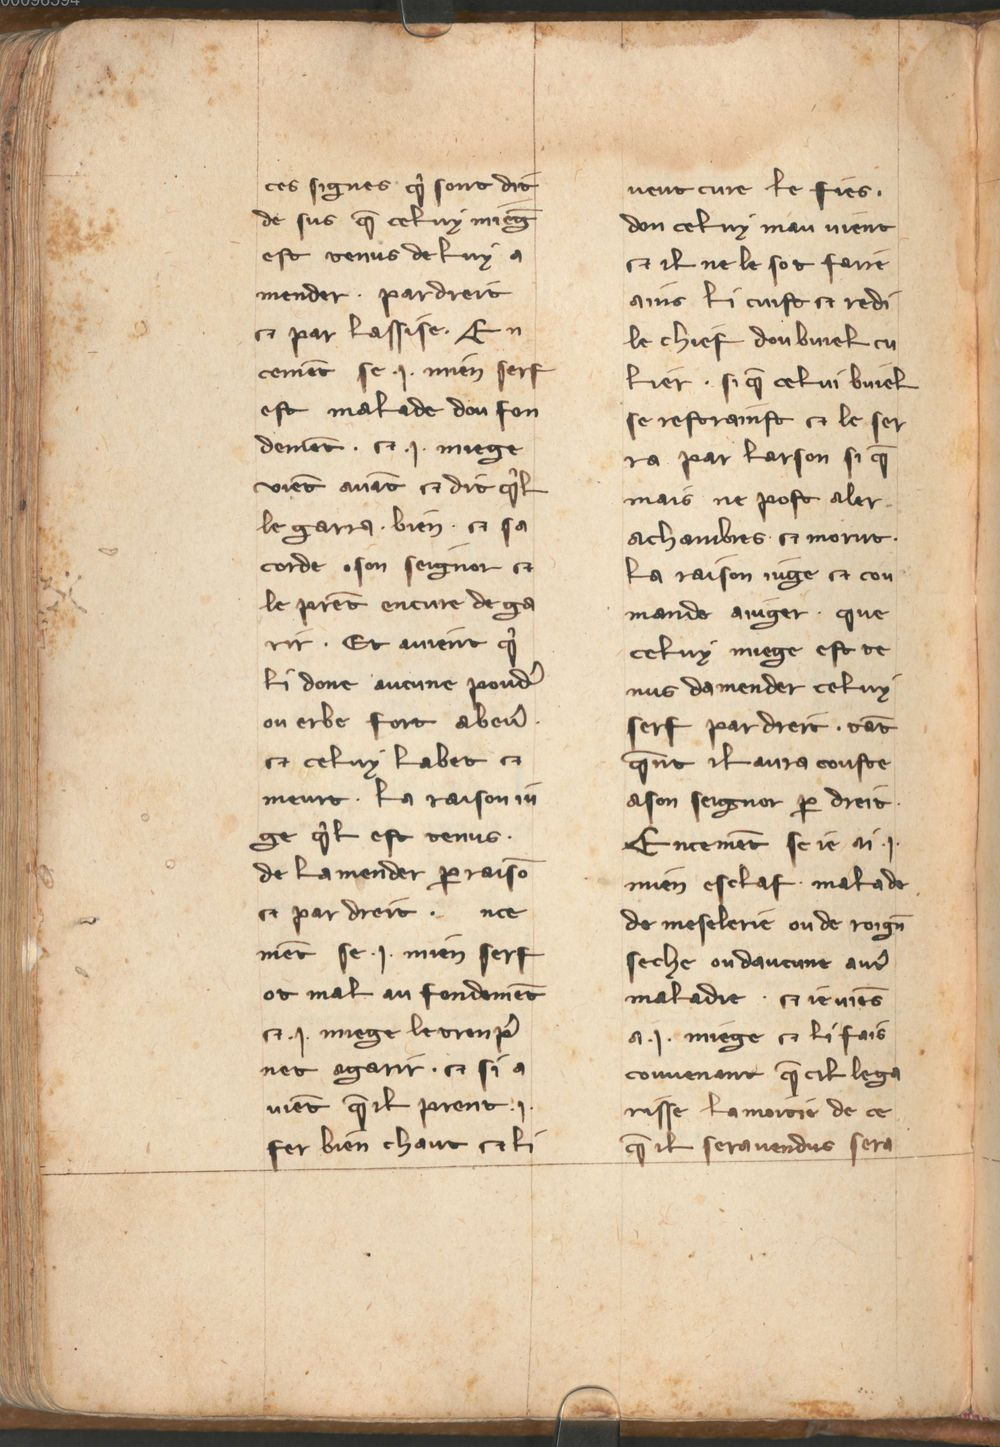 00096394
ces signes q̓ sont dit
de sus q̄ celuy mieḡ
est tenus deluy a
mender · pardreit
⁊ par lassise · En
cemēt se ·j· mien serf
est malade dou fon
demēt · ⁊ ·j· miege
viēt auāt ⁊ dit q̓l
le garra · bien · ⁊ sa
corde ·son seignor ⁊
le prēt encure de ga
rir · Et auient q̓
li done aucune poud̓
ou erbe fort abeu̓ ·
⁊ celuy labet ⁊
meurt · la raison iu
ge q̓l est tenus ·
de lamender ꝑ raisō
⁊ par dreit · nce
mēt se ·j· mien serf
ot mal au fondemēt
⁊ ·j· miege le trenp̓
net agarir · ⁊ si a
uiēt q̄ il prent ·j·
fer bien chaut ⁊ li
ueut cure le fies ·
don celuy mau uient
⁊ il ne le sot faire
ains li cuist ⁊ redi
le chief dou buiel cu
lier · si q̄ celui buiel
se restrainst ⁊ le ser
ra par larson si q̄
mais ne post aler
achambres ⁊ morut ·
la raison iuge ⁊ cou
mande aiuger · que
celuy miege est te
nus damender celuy
serf par dreit · tāt
q̄nt il aura couste
ason seignor ꝑ dreit ·
Encemēt se ie ai ·j·
mien esclaf · malade
de meselerie ou de roign̄
seche ou daucune aut̓
maladie · ⁊ ie viēs
a ·j· miege ⁊ li fais
couuenant q̄ cil lega
risse la moitie de ce
q̄ il sera uendus sera